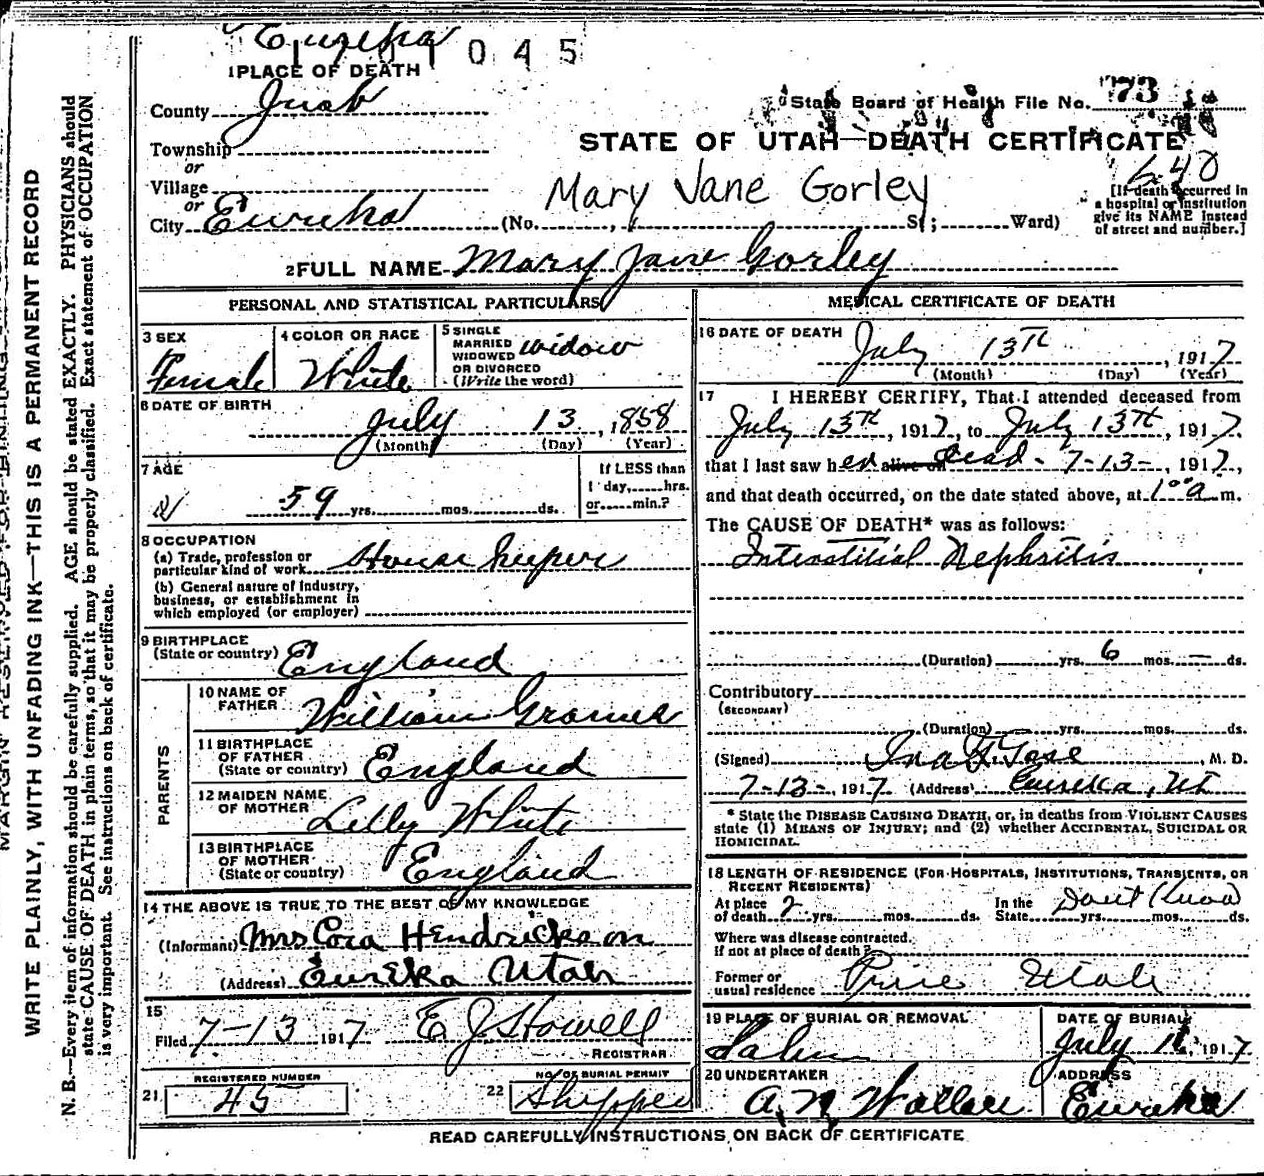 Eureka
1 1 0 4 5
1 PLACE OF DEATH
County Juab
Township
or
Village
or
City Eureka (No. , St; Ward)
State Board of Health File No. 73
STATE OF UTAH—DEATH CERTIFICATE
640
Mary Jane Gorley
[If death occurred in
a hospital or institution
give its NAME instead
of street and number.]
2 FULL NAME Mary Jane Gorley
PERSONAL AND STATISTICAL PARTICULARS
3 SEX
Female
4 COLOR OR RACE
White
5 SINGLE
MARRIED
WIDOWED
OR DIVORCED
(Write the word)
widow
6 DATE OF BIRTH
July 13, 1858
(Month) (Day) (Year)
7 AGE
59 yrs. mos. ds.
If LESS than
1 day, hrs.
or min.?
8 OCCUPATION
(a) Trade, profession or
particular kind of work House keeper
(b) General nature of industry,
business, or establishment in
which employed (or employer)
9 BIRTHPLACE
(State or country) England
PARENTS
10 NAME OF
FATHER William
11 BIRTHPLACE
OF FATHER
(State or country) England
12 MAIDEN NAME
OF MOTHER Lilly White
13 BIRTHPLACE
OF MOTHER
(State or country) England
14 THE ABOVE IS TRUE TO THE BEST OF MY KNOWLEDGE
(Informant) Mrs Cora Hendrickson
(Address) Eureka Utah
15
Filed 7-13 1917 E J Howell
REGISTRAR
21 REGISTERED NUMBER
45
22 NO. OF BURIAL PERMIT
Shipped
MEDICAL CERTIFICATE OF DEATH
16 DATE OF DEATH
July 13TH, 1917
(Month) (Day) (Year)
17 I HEREBY CERTIFY, That I attended deceased from
July 13TH, 1917, to July 13TH, 1917.
that I last saw her alive on dead - 7-13-, 1917,
and that death occurred, on the date stated above, at 1 00 a m.
The CAUSE OF DEATH* was as follows:
Interstitial Nephritis
(Duration) yrs. 6 mos. — ds.
Contributory
(SECONDARY)
(Duration) yrs. mos. ds.
(Signed) , M. D.
7-13-, 1917 (Address) Eureka, Ut
* State the DISEASE CAUSING DEATH, or, in deaths from VIOLENT CAUSES
state (1) MEANS OF INJURY; and (2) whether ACCIDENTAL, SUICIDAL OR
HOMICIDAL.
18 LENGTH OF RESIDENCE (FOR HOSPITALS, INSTITUTIONS, TRANSIENTS, OR
RECENT RESIDENTS)
At place
of death 2 yrs. mos. ds.
In the
State Dont Know yrs. mos. ds.
Where was disease contracted.
if not at place of death?
Former or
usual residence Price Utah
19 PLACE OF BURIAL OR REMOVAL
Salem
DATE OF BURIAL
July , 1917
20 UNDERTAKER
A. N. Wallace
ADDRESS
Eureka
READ CAREFULLY INSTRUCTIONS ON BACK OF CERTIFICATE
WRITE PLAINLY, WITH UNFADING INK—THIS IS A PERMANENT RECORD
N. B.—Every item of information should be carefully supplied. AGE should be stated EXACTLY. PHYSICIANS should
state CAUSE OF DEATH in plain terms, so that it may be properly classified. Exact statement of OCCUPATION
is very important. See instructions on back of certificate.